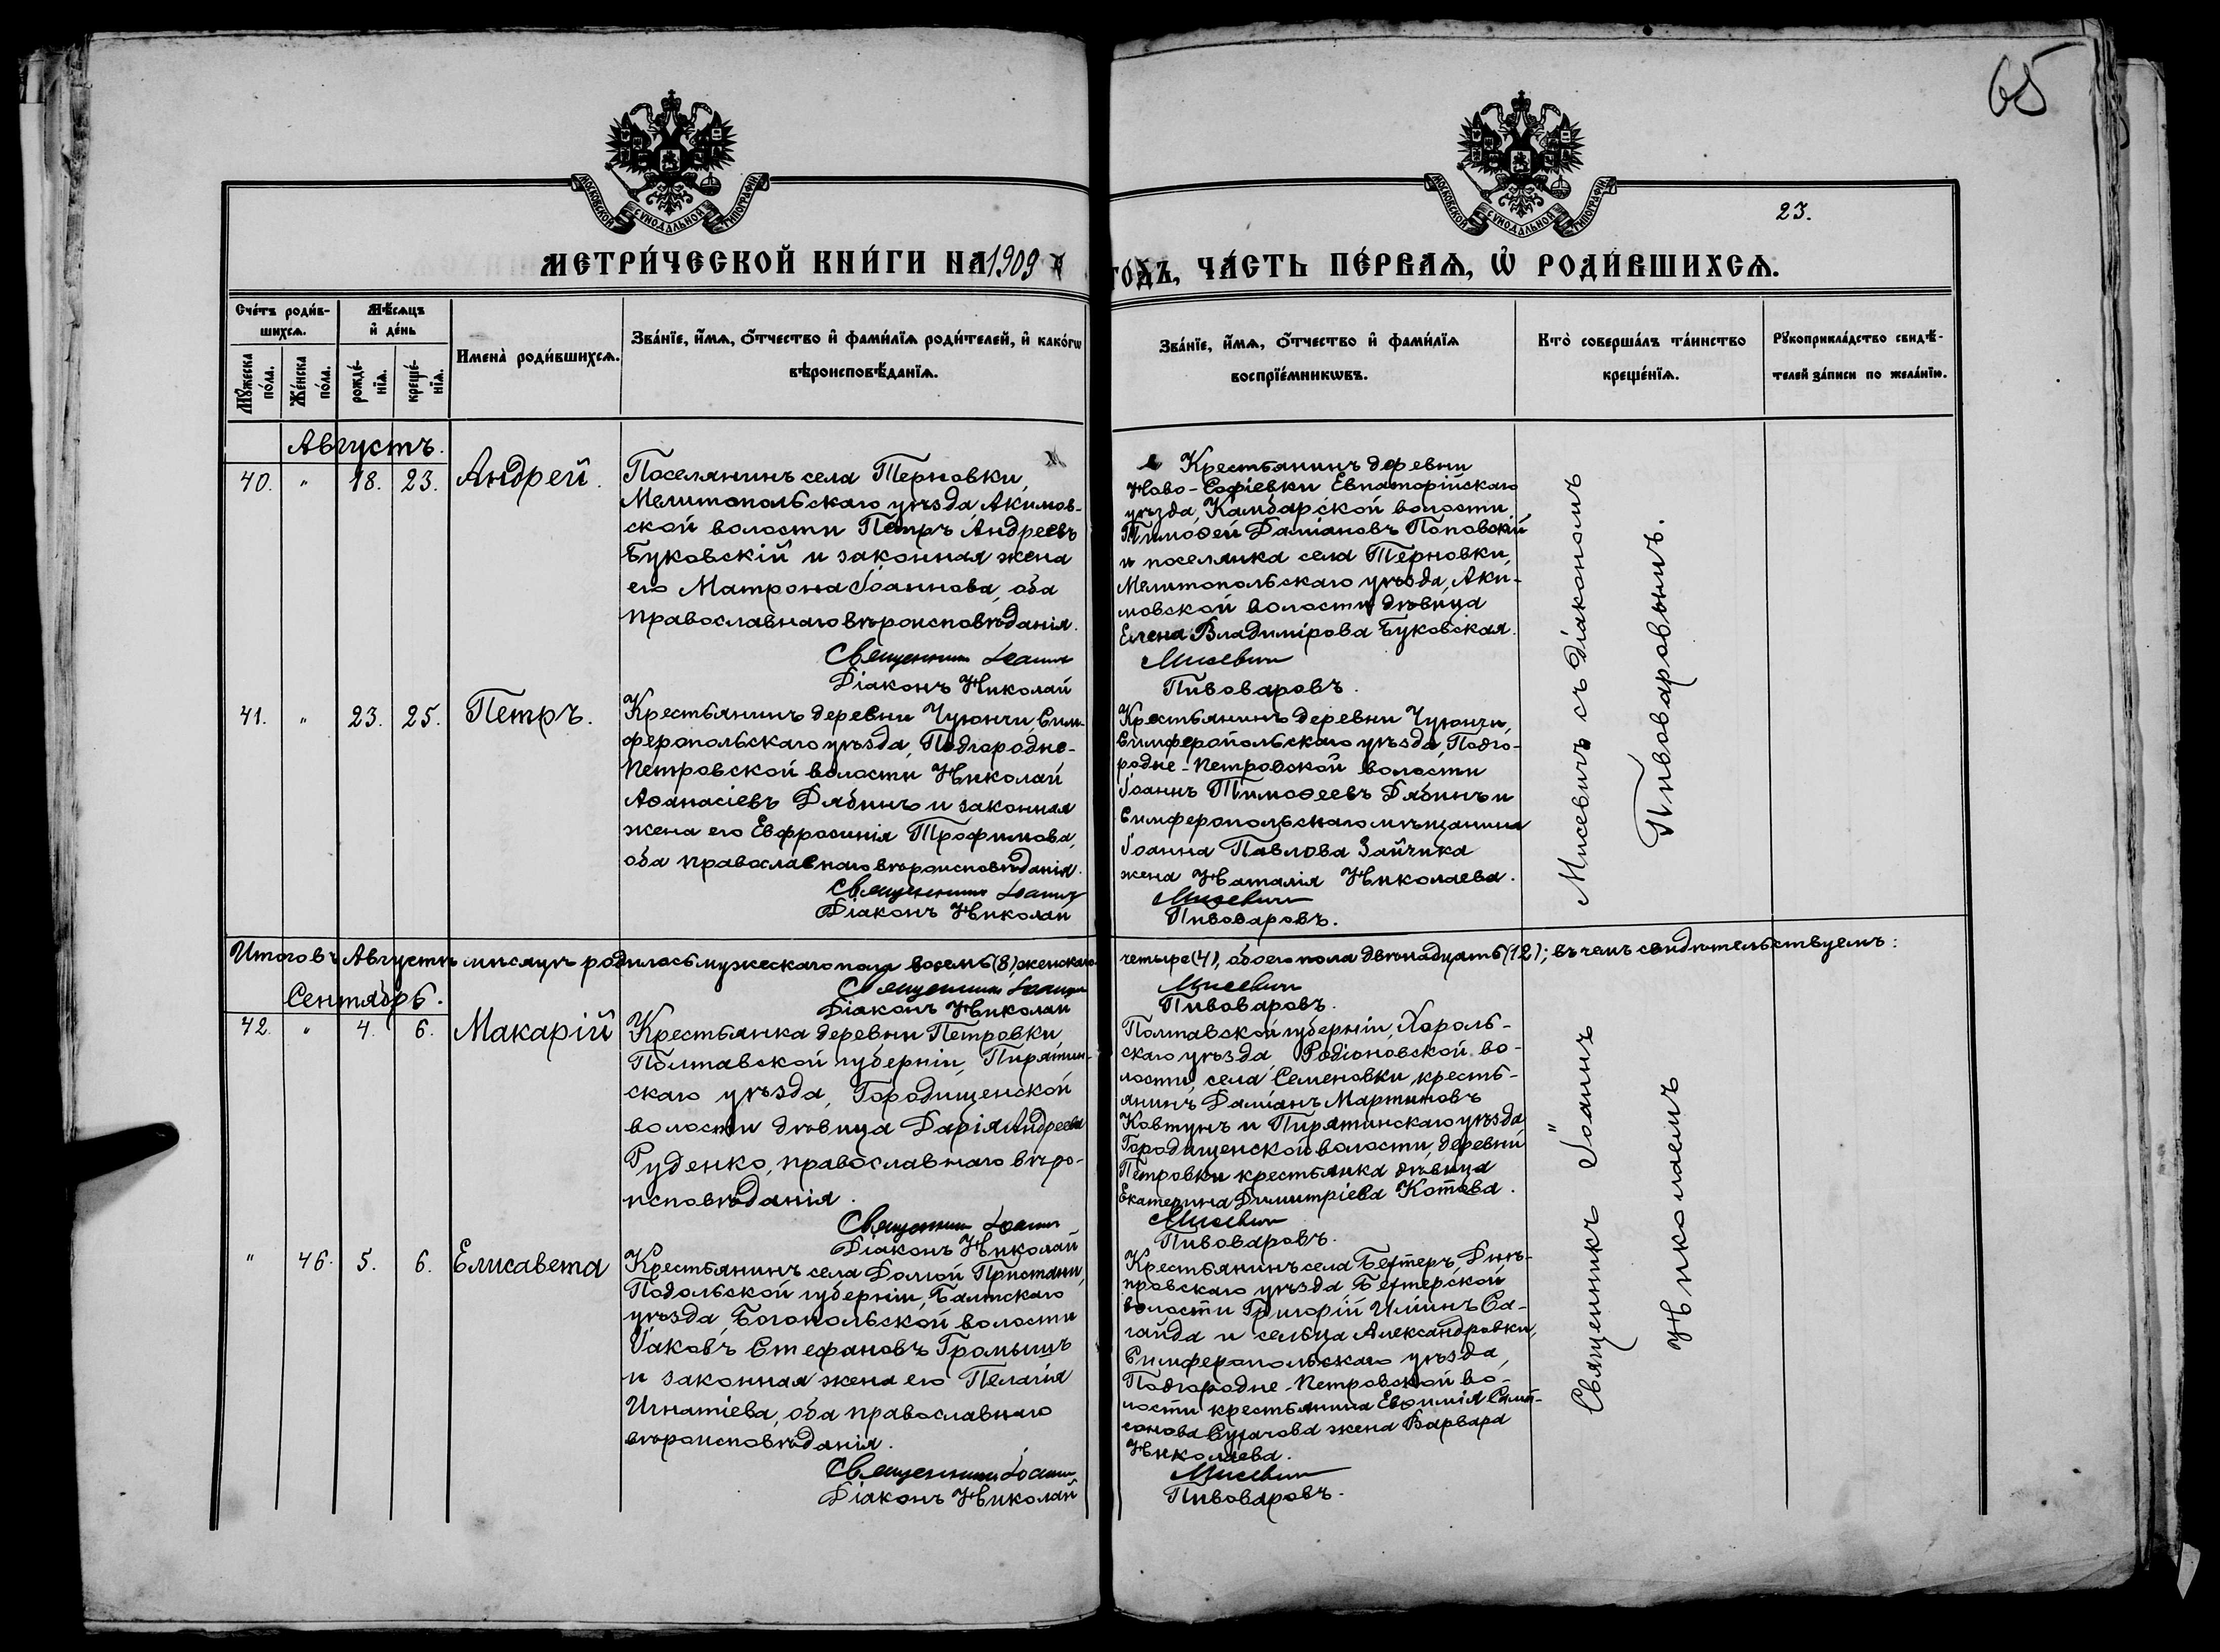 65
МОСКОВСКОЙ СѴНОДАЛЬНОЙ ТИПОГРАФІИ
МОСКОВСКОЙ СѴНОДАЛЬНОЙ ТИПОГРАФІИ
23.
МЕТРИ́ЧЕСКОЙ КНИ́ГИ НА 1909
ГО́ДЪ, ЧА́СТЬ ПЕ́РВАѦ, Ѡ҆ РОДИ́ВШИХСѦ.
Сче́тъ роди́в-
шихсѧ.
Мѣ́сѧцъ
и҆ де́нь
Мꙋ́жеска
по́ла.
Же́нска
по́ла.
рожде́-
нїѧ.
креще́-
нїѧ.
Имена̀ роди́вшихсѧ.
Зва́нїе, и҆́мѧ, ѻ҆́тчество и҆ фами́лїѧ роди́телей, и҆ како́гѡ
вѣроисповѣ́данїѧ.
Зва́нїе, и҆́мѧ, ѻ҆́тчество и҆ фами́лїѧ
воспрїе́мникѡвъ.
Кто̀ соверша́лъ та́инство
креще́нїѧ.
Рꙋкоприкла́дство свидѣ́-
телей за́писи по жела́нїю.
Августъ.
40. " 18. 23. Андрей.
Поселянинъ села Терновки,
Мелитопольскаго уѣзда, Акимов-
ской волости Петръ Андреевъ
Буковскій и законная жена
его Матрона Іоаннова, оба
православнаго вѣроисповѣданія.
Священникъ Іоаннъ
Діаконъ Николай
Крестьянинъ деревни
Ново-Софіевки Евпаторійскаго
уѣзда, Камбарской волости
Тимоѳей Даміановъ Поповскій
и поселянка села Терновки,
Мелитопольскаго уѣзда, Аки-
мовской волости дѣвица
Елена Владимірова Буковская.
Мисевичъ
Пивоваровъ.
41. " 23. 25. Петръ.
Крестьянинъ деревни Чуюнчи, Сим-
феропольскаго уѣзда, Подгородне-
Петровской волости Николай
Аѳанасіевъ Дябинъ и законная
жена его Евфросинія Трофимова,
оба православнаго вѣроисповѣданія.
Священникъ Іоаннъ
Діаконъ Николай
Крестьянинъ деревни Чуюнчи,
Симферопольскаго уѣзда, Подго-
родне-Петровской волости
Іоаннъ Тимоѳеевъ Дябинъ и
Симферопольскаго мѣщанина
Іоанна Павлова Зайчика
жена Наталія Николаева.
Мисевичъ
Пивоваровъ.
Мисевичъ съ Діакономъ
Пивоваровымъ.
Итого въ Августѣ мѣсяцѣ родилось мужескаго пола восемь (8), женскаго
четыре (4), обоего пола двѣнадцать (12); въ чемъ свидѣтельствуемъ:
Священникъ Іоаннъ
Діаконъ Николай
Мисевичъ
Пивоваровъ.
Сентябрь.
42. " 4. 6. Макарій
Крестьянка деревни Петровки,
Полтавской губерніи, Пирятин-
скаго уѣзда, Городищенской
волости дѣвица Дарія Андреева
Руденко, православнаго вѣро-
исповѣданія.
Священникъ Іоаннъ
Діаконъ Николай
Полтавской губерніи, Хороль-
скаго уѣзда, Родіоновской во-
лости, села Семеновки, кресть-
янинъ Даміанъ Мартиновъ
Ковтунъ и Пирятинскаго уѣзда
Городищенской волости, деревни
Петровки крестьянка дѣвица
Екатерина Димитріева Котова.
Мисевичъ
Пивоваровъ.
" 46. 5. 6. Елисавета
Крестьянинъ села Долгой Пристани,
Подольской губерніи, Балтскаго
уѣзда, Богопольской волости
Іаковъ Стефановъ Громышъ
и законная жена его Пелагія
Игнатіева, оба православнаго
вѣроисповѣданія.
Священникъ Іоаннъ
Діаконъ Николай
Крестьянинъ села Бехтеръ, Днѣ-
провскаго уѣзда, Бехтерской
волости Григорій Ильинъ Са-
гайда и сельца Александровки,
Симферопольскаго уѣзда,
Подгородне-Петровской во-
лости крестьянина Евѳимія Самп-
сонова жена Варвара
Николаева.
Мисевичъ
Пивоваровъ.
Священникъ Іоаннъ
Николаемъ